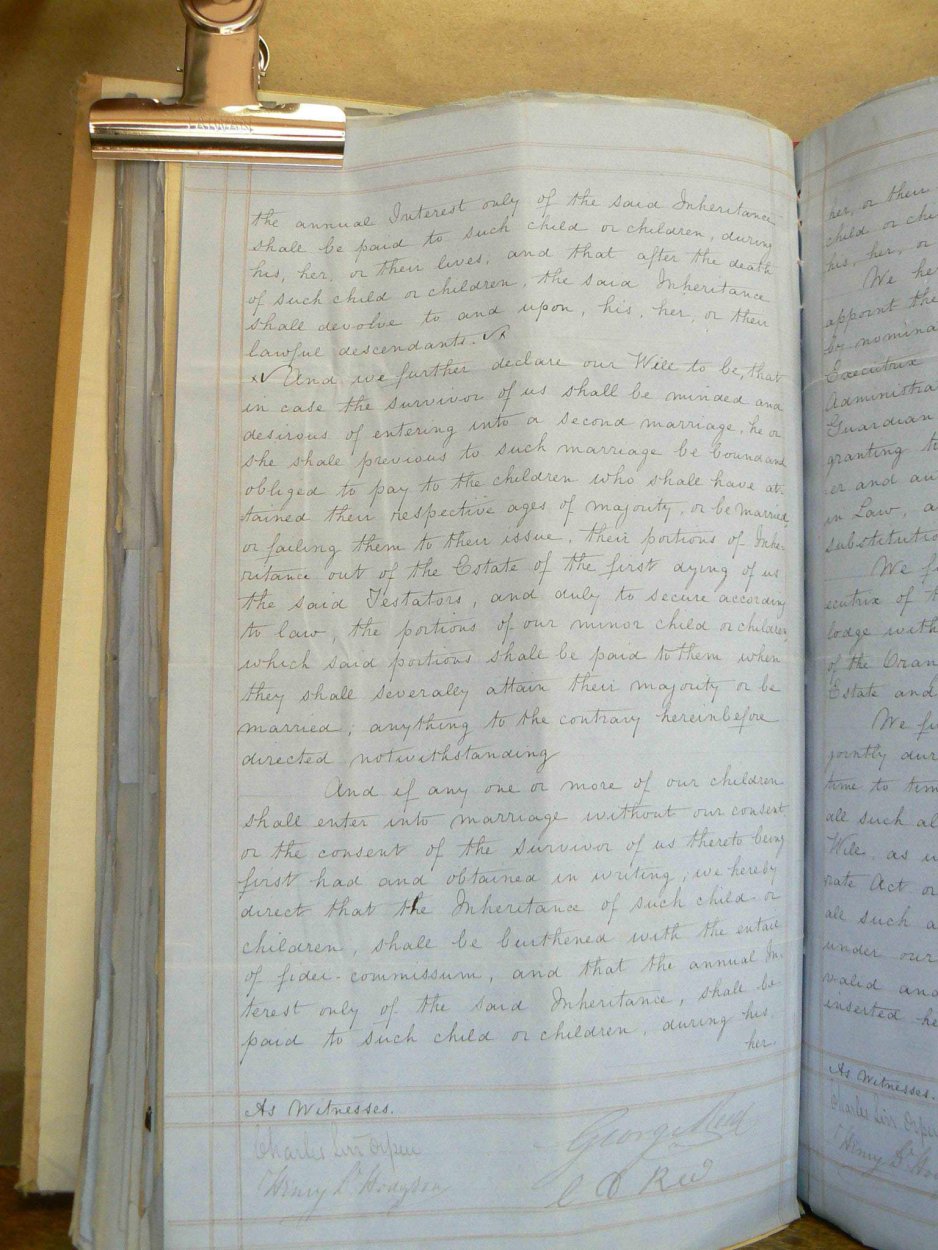 TAIWAN
the annual Interest only of the said Inheritance
shall be paid to such child or children, during
his, her, or their lives, and that after the death
of such child or children, the said Inheritance
shall devolve to and upon, his, her, or their
lawful descendants.
And we further declare our Will to be, that
in case the survivor of us shall be minded and
desirous of entering into a second marriage, he or
she shall previous to such marriage be bound and
obliged to pay to the children who shall have at-
tained their respective ages of majority, or be married,
or failing them to their issue, their portions of Inhe-
ritance out of the Estate of the first dying of us
the said Testators, and duly to secure according
to law, the portions of our minor child or children,
which said portions shall be paid to them when
they shall severally attain their majority or be
married; anything to the contrary hereinbefore
directed notwithstanding
And if any one or more of our children
shall enter into marriage without our consent
or the consent of the survivor of us thereto being
first had and obtained in writing, we hereby
direct that the Inheritance of such child or
children, shall be burthened with the entail
of fidei-commissum, and that the annual In-
terest only of the said Inheritance, shall be
paid to such child or children, during his,
her.
As Witnesses.
Charles
Henry Hodgson
George
C D
her, or their
child or chi
his, her, or
We he
appoint the
by nomina
Executrix
Administra
Guardian
granting t
er and au
in Law, a
substitutio
We f
ecutrix of t
lodge with
of the Oran
Estate and
We fu
jointly dur
time to tim
all such al
Will, as w
rate Act or
all such a
under our
valid and
inserted he
As Witnesses.
Charles
Henry